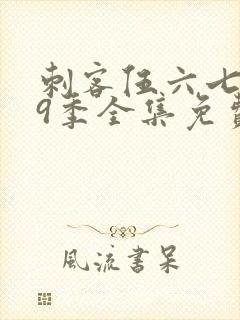 刺客伍六七
9季全集免费
風流書呆